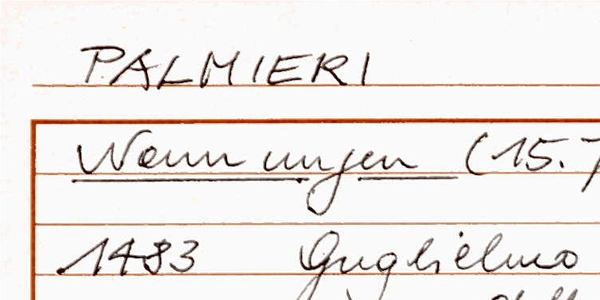 PALMIERI
Nennungen (15.
1483 Guglielmo